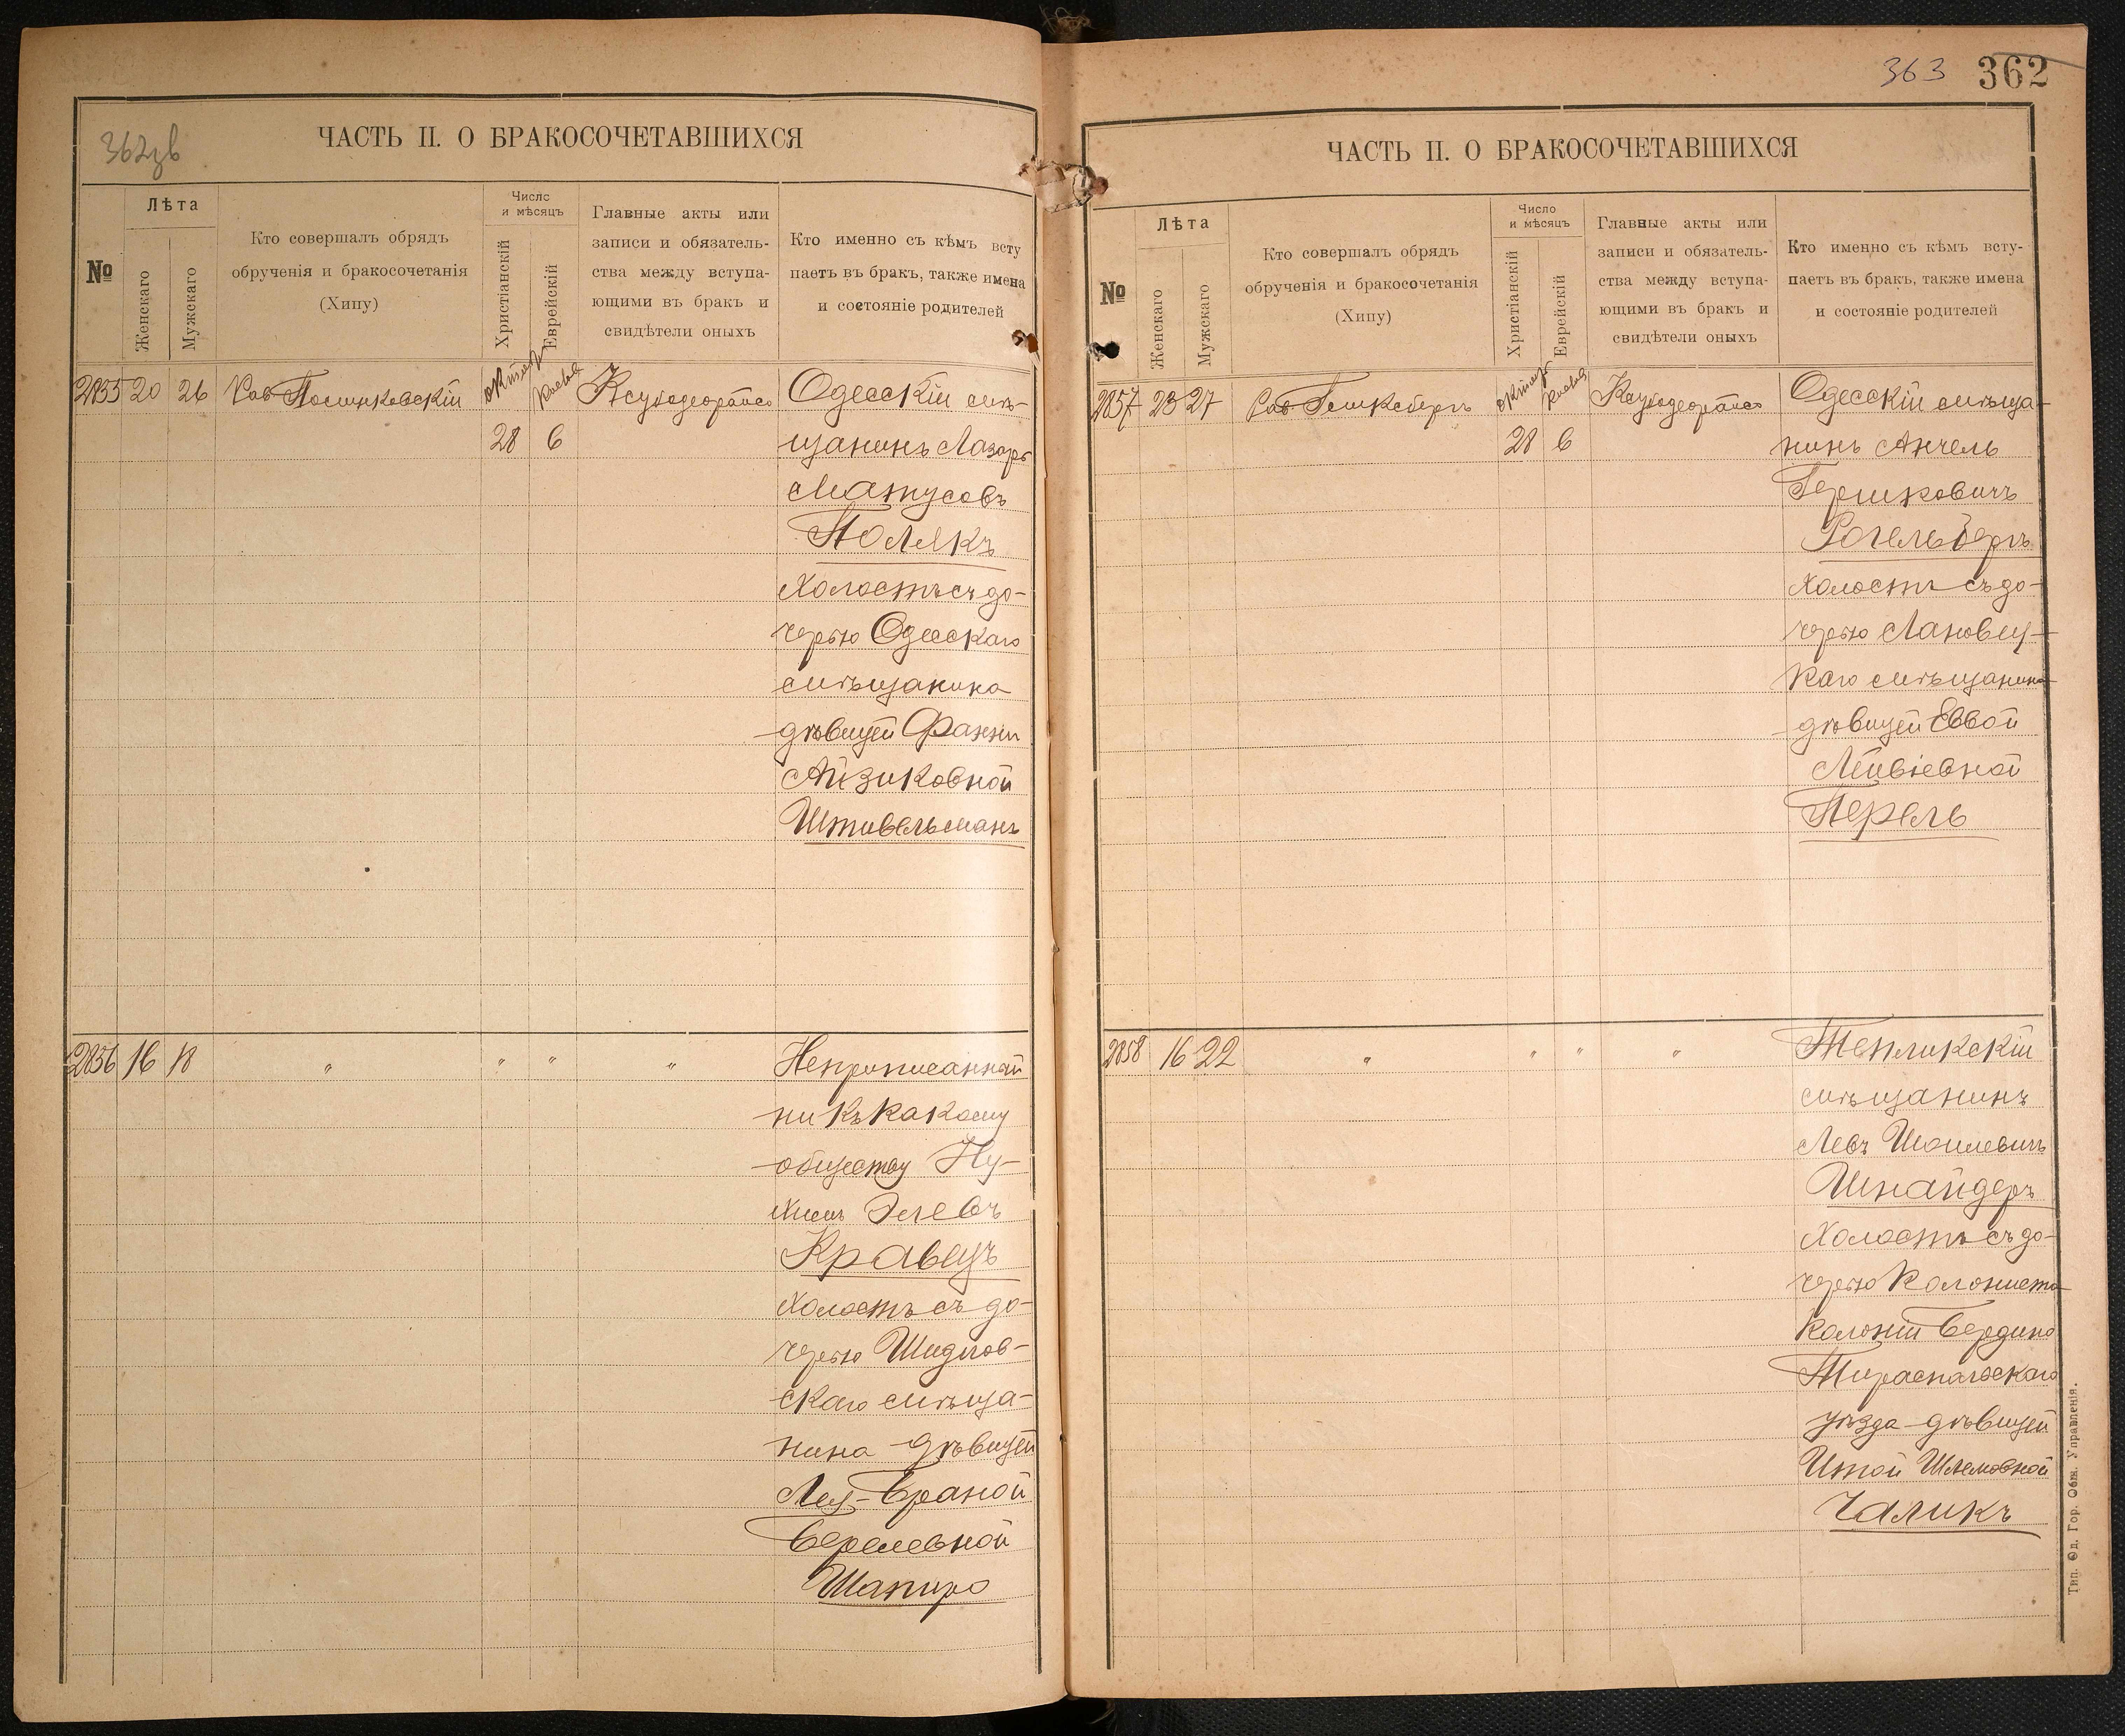 362зв
ЧАСТЬ II. О БРАКОСОЧЕТАВШИХСЯ
№
Лѣта
Женскаго
Мужскаго
Кто совершалъ обрядъ
обрученія и бракосочетанія
(Хипу)
Число
и мѣсяцъ
Христіанскій
Еврейскій
Главные акты или
записи и обязатель-
ства между вступа-
ющими въ бракъ и
свидѣтели оныхъ
Кто именно съ кѣмъ всту
паетъ въ бракъ, также имена
и состояніе родителей
2855 20 26 Рав
Одесскій мѣ-
28 6
щанинъ Лазарь
Матусовъ
Полякъ
холостъ съ до-
черью Одесскаго
мѣщанина
дѣвицей Фанни
Айзиковной
Штивельманъ
2856 16 18 " " " "
Неприписанный
ни къ какому
обществу Ну-
химъ Элевъ
Кравецъ
холостъ съ до-
черью Шидлов-
скаго мѣща-
нина дѣвицей
Лея-Браной
Берелевной
Шапиро
363 362
ЧАСТЬ II. О БРАКОСОЧЕТАВШИХСЯ
№
Лѣта
Женскаго
Мужскаго
Кто совершалъ обрядъ
обрученія и бракосочетанія
(Хипу)
Число
и мѣсяцъ
Христіанскій
Еврейскій
Главные акты или
записи и обязатель-
ства между вступа-
ющими въ бракъ и
свидѣтели оныхъ
Кто именно съ кѣмъ всту-
паетъ въ бракъ, также имена
и состояніе родителей
2857 23 27 Рав
Одесскій мѣща-
28 6
нинъ Анчель
Гершковичъ
Рогельбергъ
холостъ съ до-
черью Лановец-
каго мѣщанина
дѣвицей Еввой
Лейвіевной
Перель
2858 16 22 " " " "
Тепликскій
мѣщанинъ
Левъ Шоилевичъ
Шнайдеръ
холостъ съ до-
черью колониста
колоніи Бердино
Тираспольскаго
уѣзда дѣвицей
Итой Шлемовной
Чаликъ
Тип. Од. Гор. Общ. Управленія.